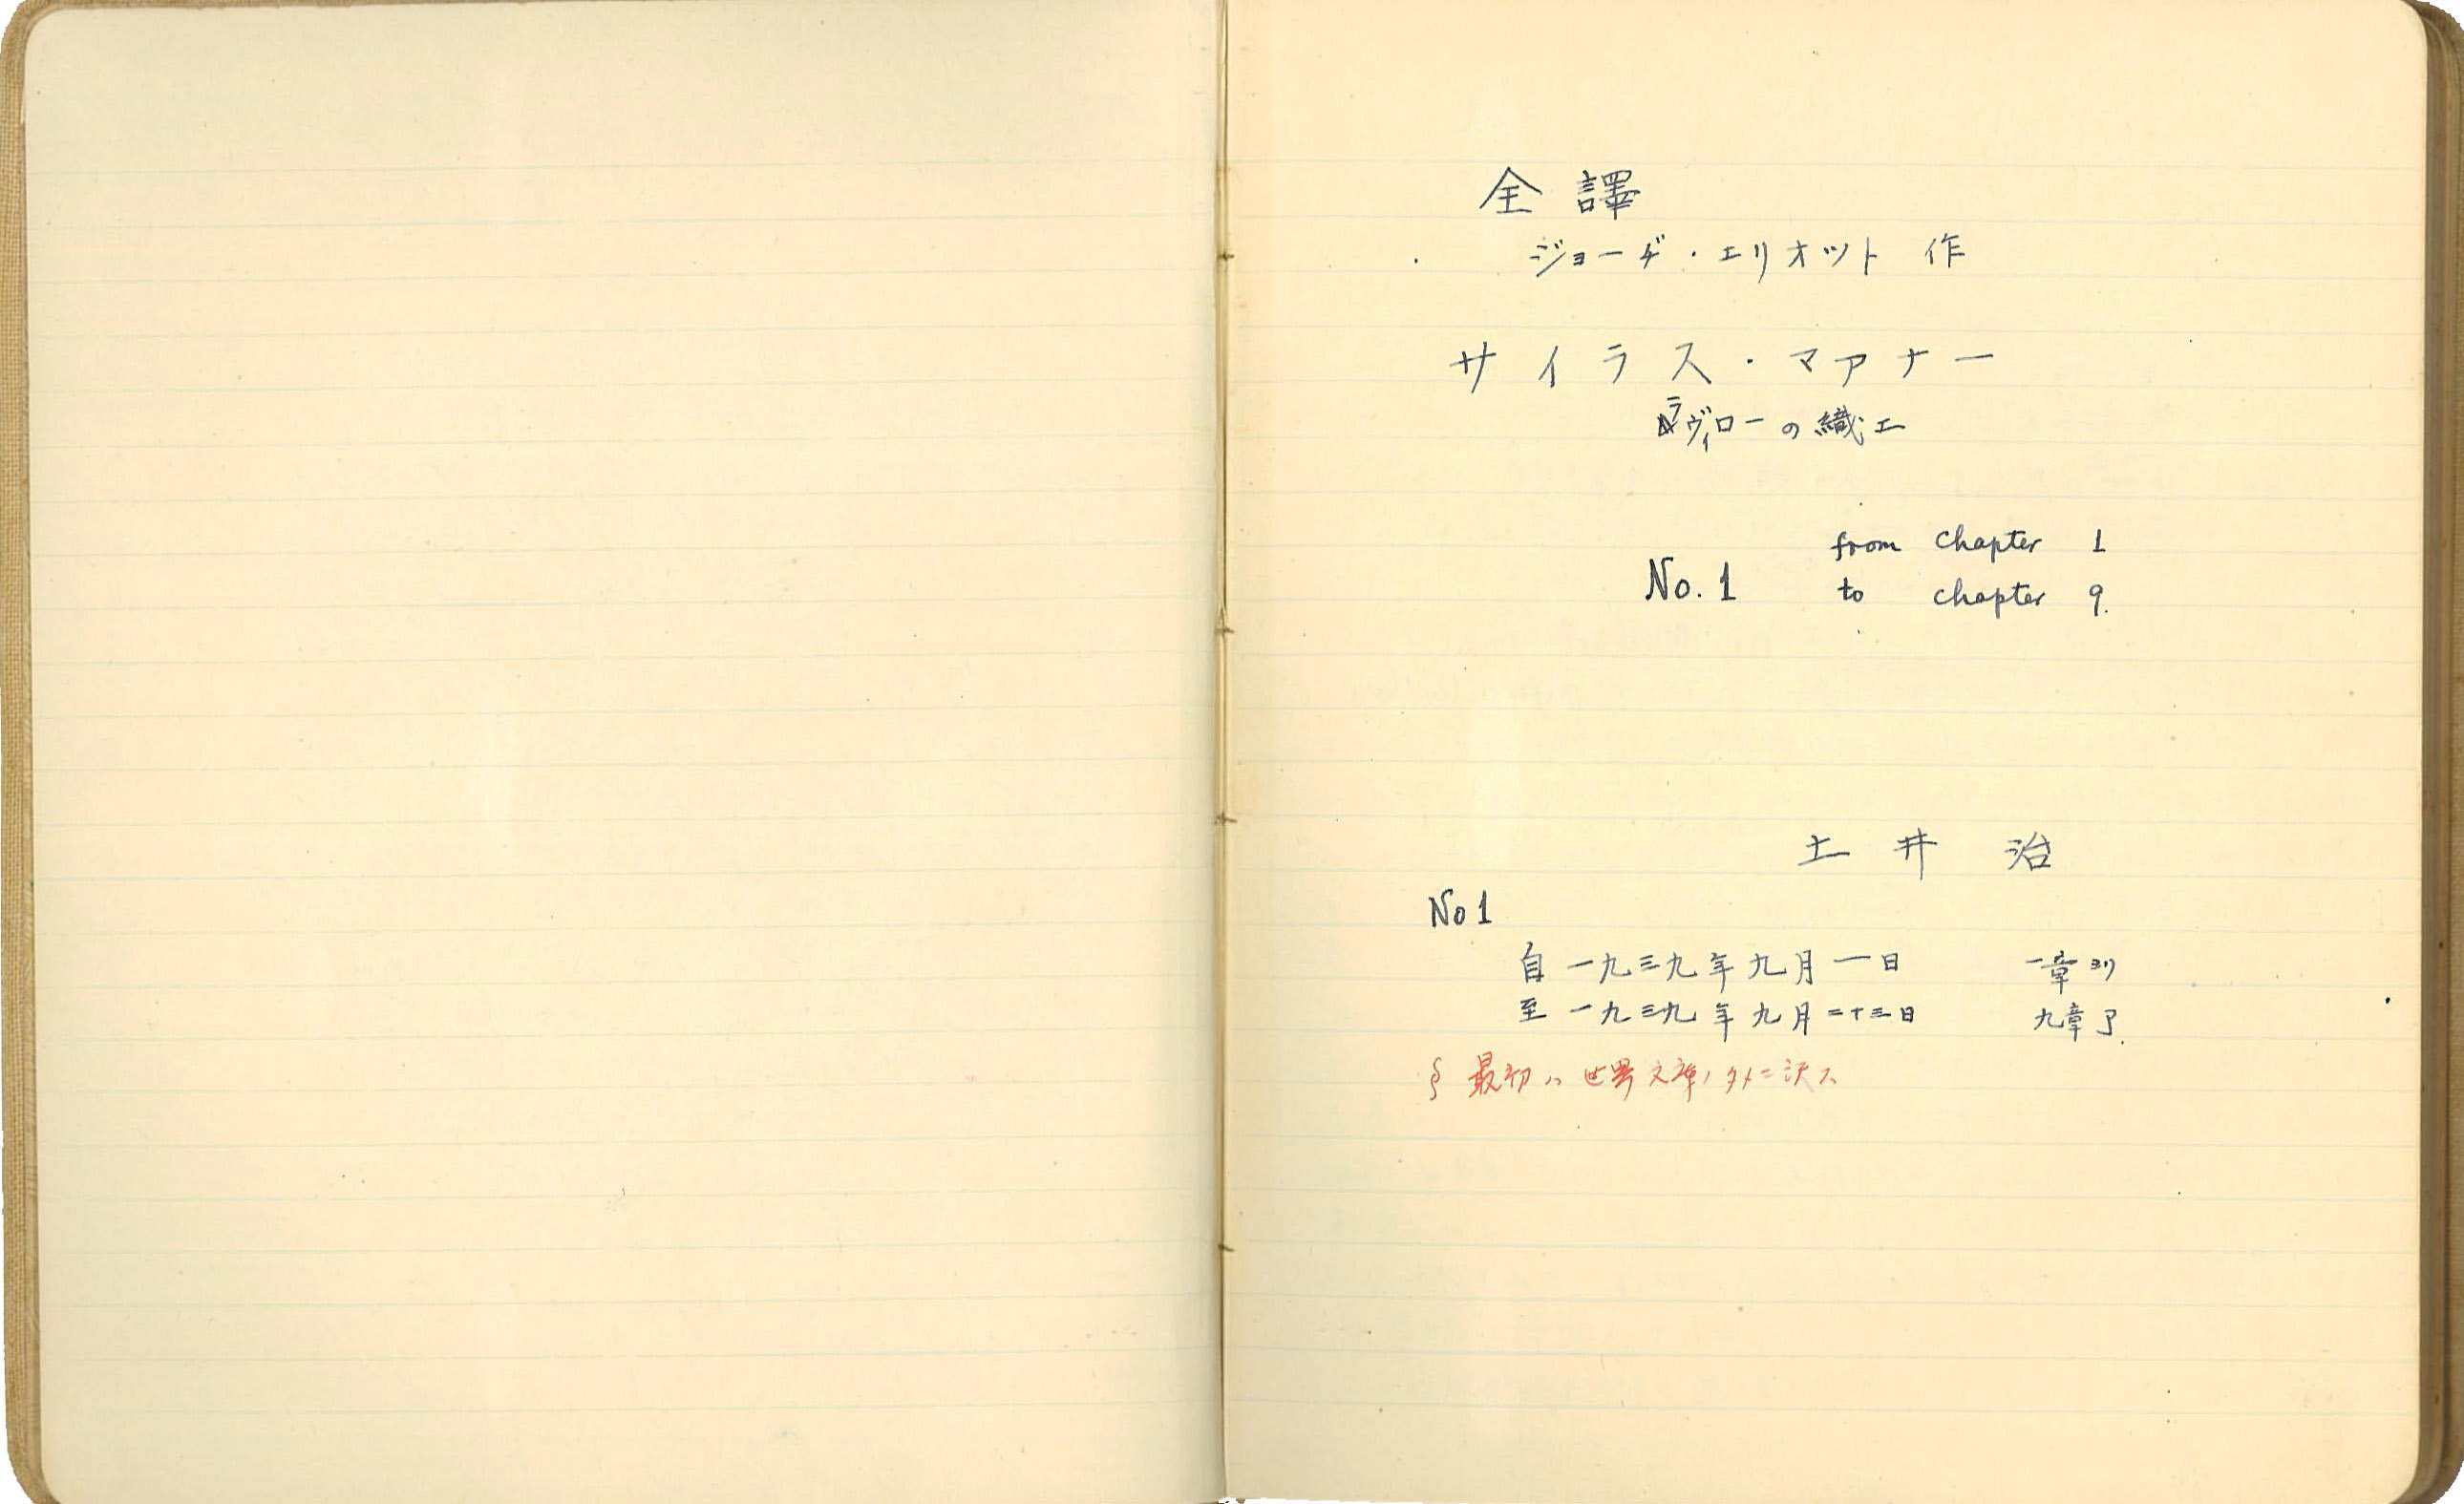 全譯
ジョーヂ・エリオット 作
サイラス・マアナー
ラヴィローの織工
from chapter 1
No. 1 to chapter 9.
土井 治
No 1
自 一九三九年九月一日 一章ヨリ
至 一九三九年九月二十三日 九章了.
§ 最初ハ世界文庫ノタメニ訳ス